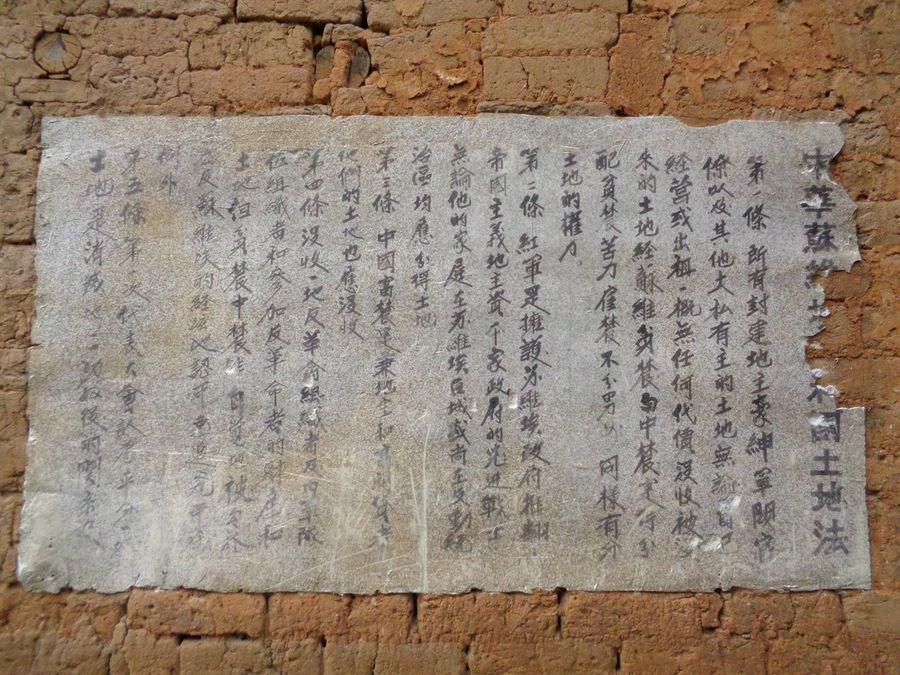 華蘇維和國土地法
第一條 所有封建地主豪紳軍閥官
僚以及其他大私有主的土地無論自
經營或出租一概無任何代價沒收被
來的土地經蘇維貧農與中農實行分
配貧農苦力雇農不分男女 同樣有分
土地的權力
第二條 紅軍是擁護苏維埃政府推翻
帝國主義地主資本家政府的先進戰士
無論他的家庭在苏維埃區域或尚在反動統
治區均應分得土地
第三條 中國富農是兼地主和
他們的土地也應沒收
第四條沒收一切反革命組織者及白軍隊
伍組織者和參加反革命者的財產和
土地 但貧農中農非自覺地被
反蘇維埃的經地認可
例外
第五條第一次代表大會 平分
土地是消滅 切奴役的關係